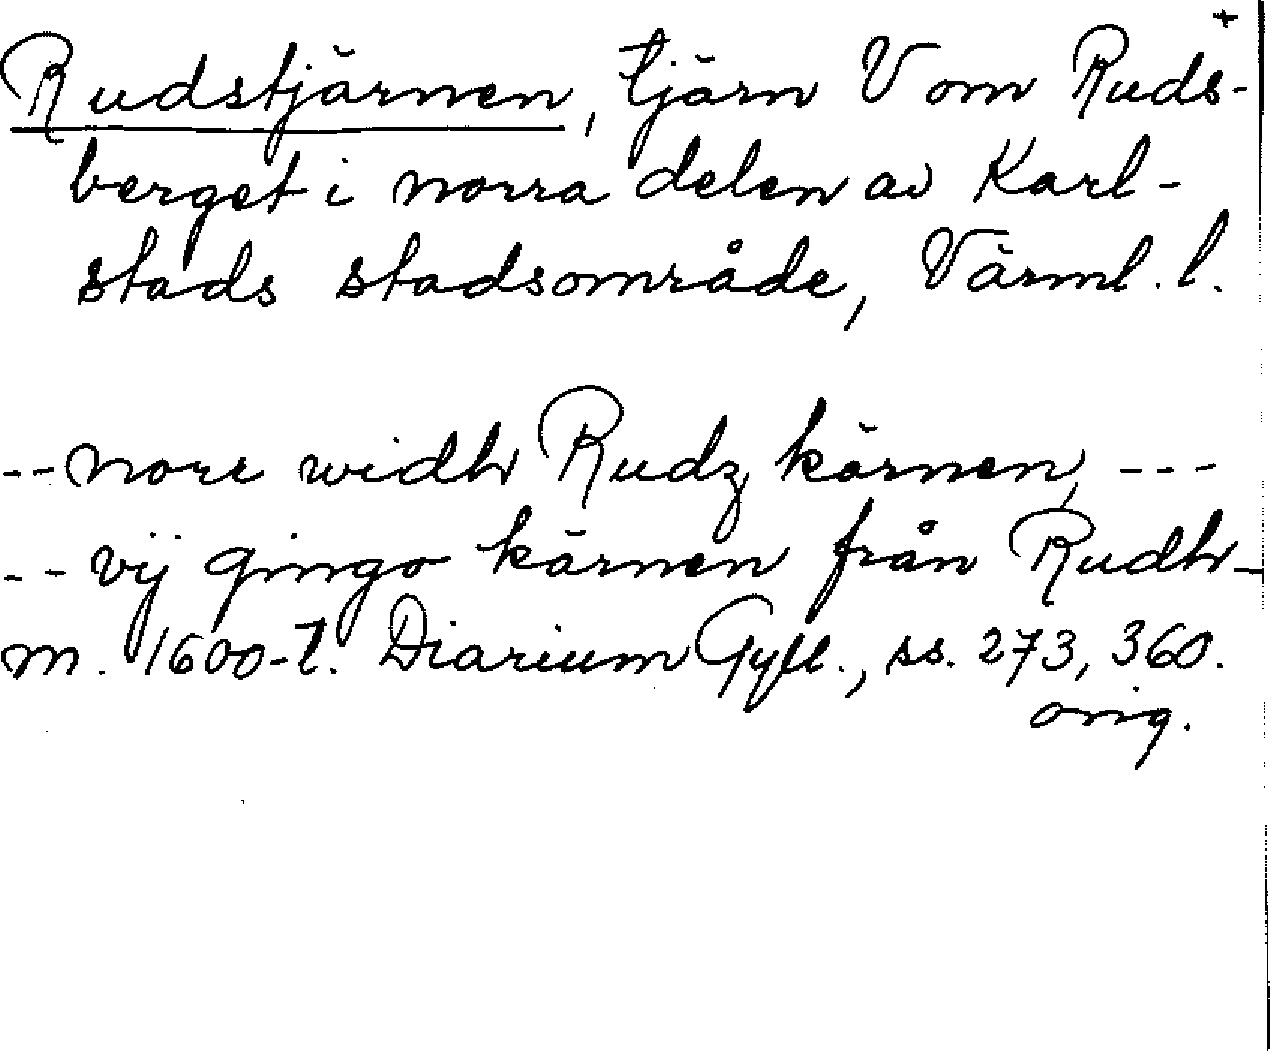 +
Rudstjärnen, tjärn V om Ruds-
berget i norra delen av Karl-
stads stadsområde, Värml. l.
-- norr widh Rudz kärnen, ---
-- vij gingo kärnen från Rudh -
m. 1600-t. Diarium Gyll., ss. 273, 360.
orig.